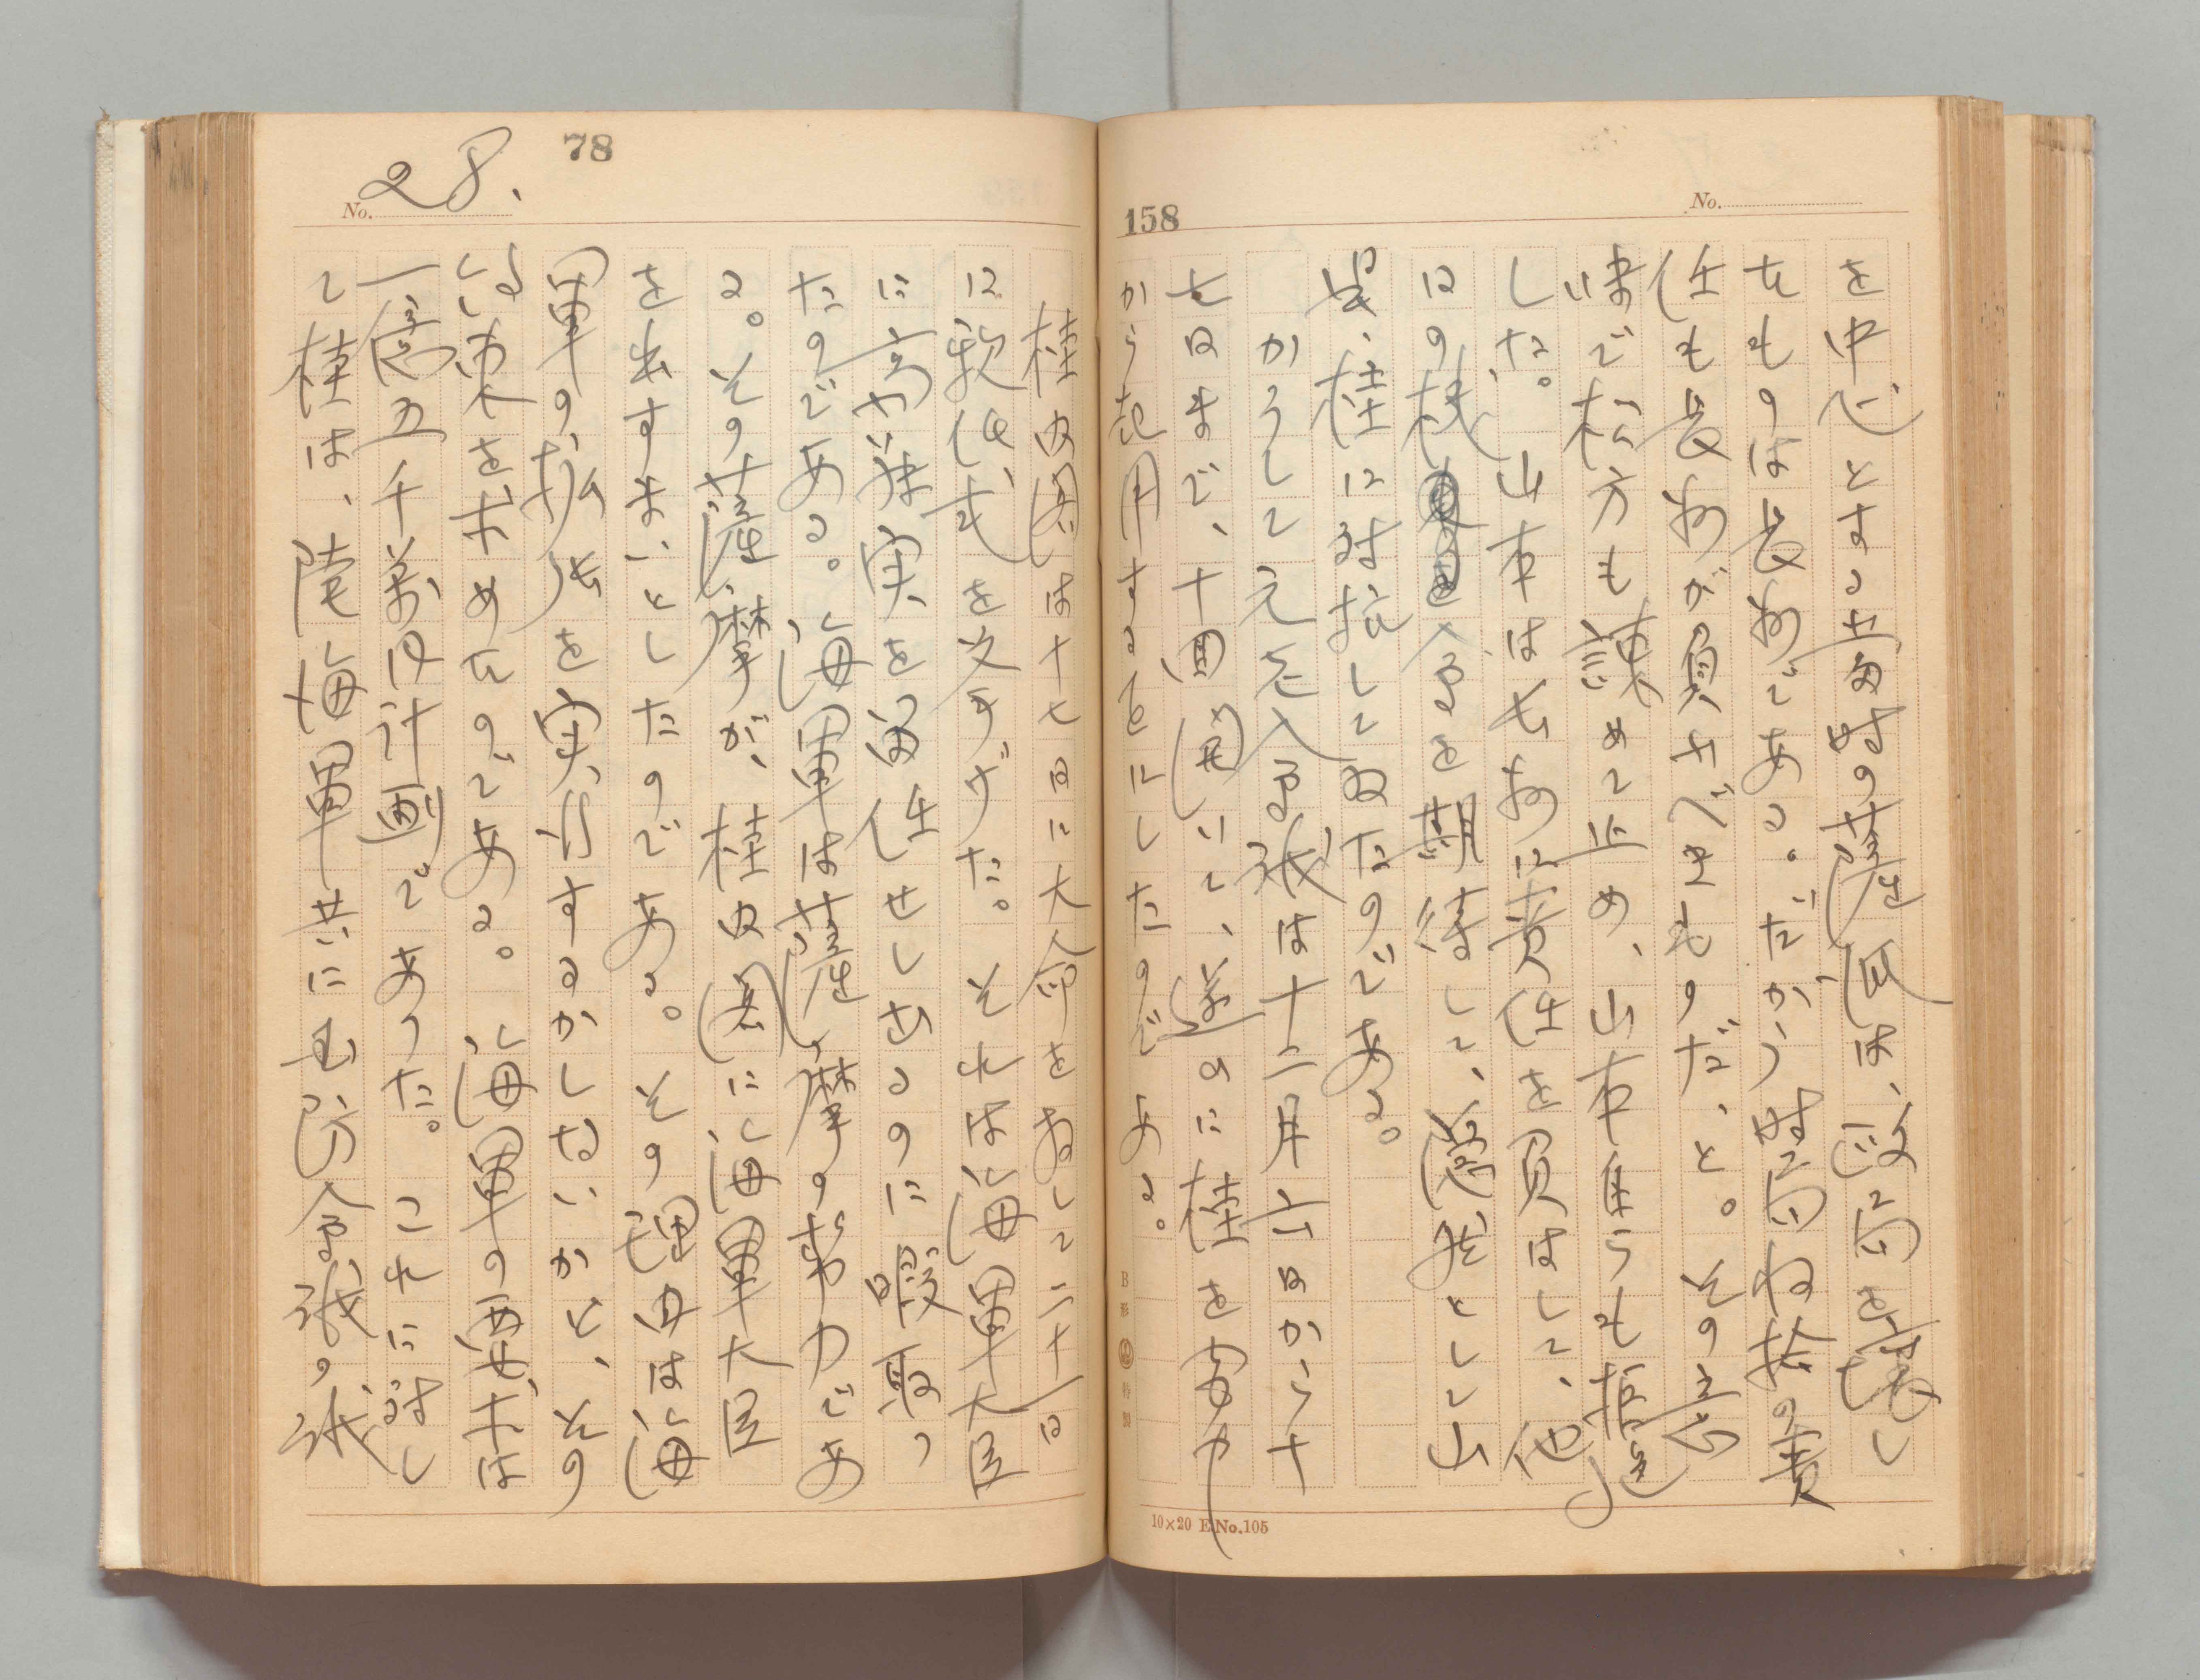 No.
158
を中心とする当時の薩派は、政局を壊し
たものは長州である。だから時局収拾の責
任も長州が負ふべきものだ、と。その意
味で松方も諫めて止め、山本自らも
した。山本は長州に責任を負はして、他
日の機会を期待して、悠然として山
、桂に対抗してゐたのである。
かうして元老会議は十二月六日から十
七日まで、十回開いて、遂のに桂を宮中
から起用することにしたのである。
B形
10×20 E.No.105
78
No. 28.
桂内閣は十七日に大命をおして二十一日
に親任式を父げた。それは海軍大臣
に斎藤実を留任せし出るのに暇取つ
たのである。海軍は薩摩の勢力であ
る。その薩摩が、桂内閣に海軍大臣
を出すまいとしたのである。その理由は海
軍の拡張を実行するかしないかと、その
約束を求めたのである。海軍の要求は
一億五千萬円計画であった。これに対し
て桂は、陸海軍共に国防会議の議